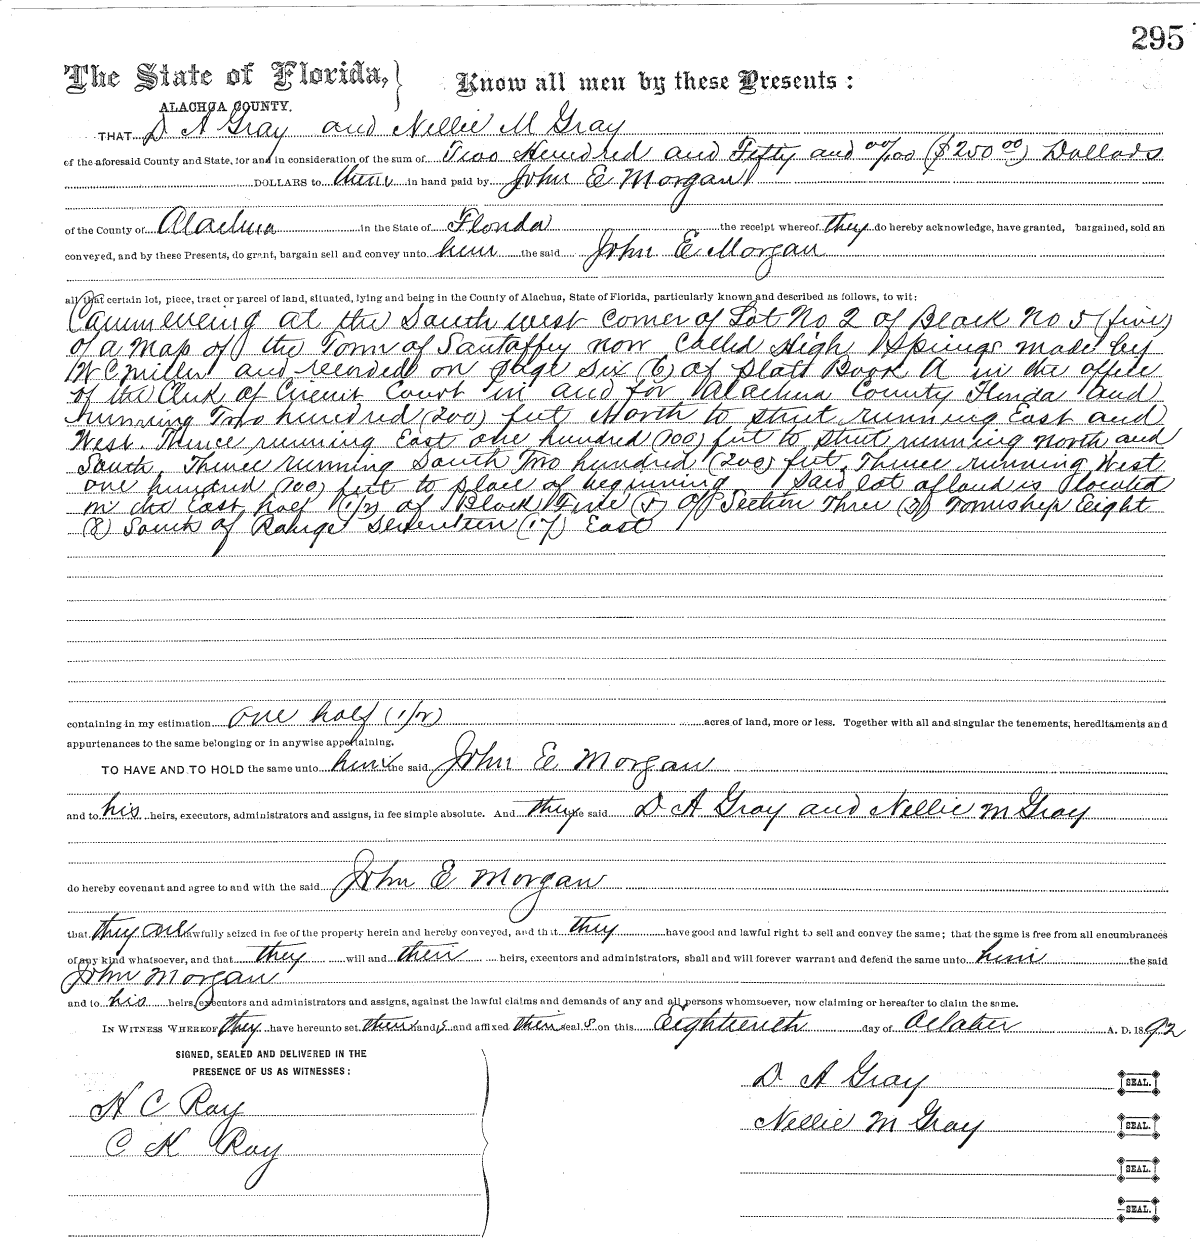 295
The State of Florida, } Know all men by these Presents :
ALACHUA COUNTY.
THAT D A Gray and Nellie M Gray
of the aforesaid County and State, for and in consideration of the sum of Two Hundred and Fifty and 00/100 ($250 00) Dollars
DOLLARS to them in hand paid by John E Morgan
of the County of Alachua in the State of Florida the receipt whereof they do hereby acknowledge, have granted, bargained, sold an
conveyed, and by these Presents, do grant, bargain sell and convey unto him the said John E Morgan
all that certain lot, piece, tract or parcel of land, situated, lying and being in the County of Alachua, State of Florida, particularly known and described as follows, to wit:
Commencing at the South west corner of Lot No 2 of Block No 5 (five)
of a Map of the Town of Santaffey now called High Springs made by
W C Miller and recorded on Page six (6) of Platt Book A in the office
of the Clerk of Circuit Court in and for Alachua County Florida and
running Two hundred (200) feet North to street running East and
West. Thence running East one hundred (100) feet to street running north and
South. Thence running South Two hundred (200) feet. Thence running West
one hundred (100) feet to place of beginning Said lot of land is located
in the East half (1/2) of Block Five (5) of Section Three (3) Township Eight
(8) South of Range Seventeen (17) East
containing in my estimation one half (1/2) acres of land, more or less. Together with all and singular the tenements, hereditaments and
appurtenances to the same belonging or in anywise appertaining.
TO HAVE AND TO HOLD the same unto him the said John E Morgan
and to his heirs, executors, administrators and assigns, in fee simple absolute. And they he said D A Gray and Nellie M Gray
do hereby covenant and agree to and with the said John E Morgan
that they are lawfully seized in fee of the property herein and hereby conveyed, and that they have good and lawful right to sell and convey the same; that the same is free from all encumbrances
of any kind whatsoever, and that they will and their heirs, executors and administrators, shall and will forever warrant and defend the same unto him the said
John Morgan
and to his heirs, executors and administrators and assigns, against the lawful claims and demands of any and all persons whomsoever, now claiming or hereafter to claim the same.
IN WITNESS WHEREOF they have hereunto set their hands and affixed their seal s on this Eighteenth day of October A. D. 1892
SIGNED, SEALED AND DELIVERED IN THE
PRESENCE OF US AS WITNESSES :
H C Ray
C K Ray
D A Gray SEAL.
Nellie M Gray SEAL.
SEAL.
SEAL.